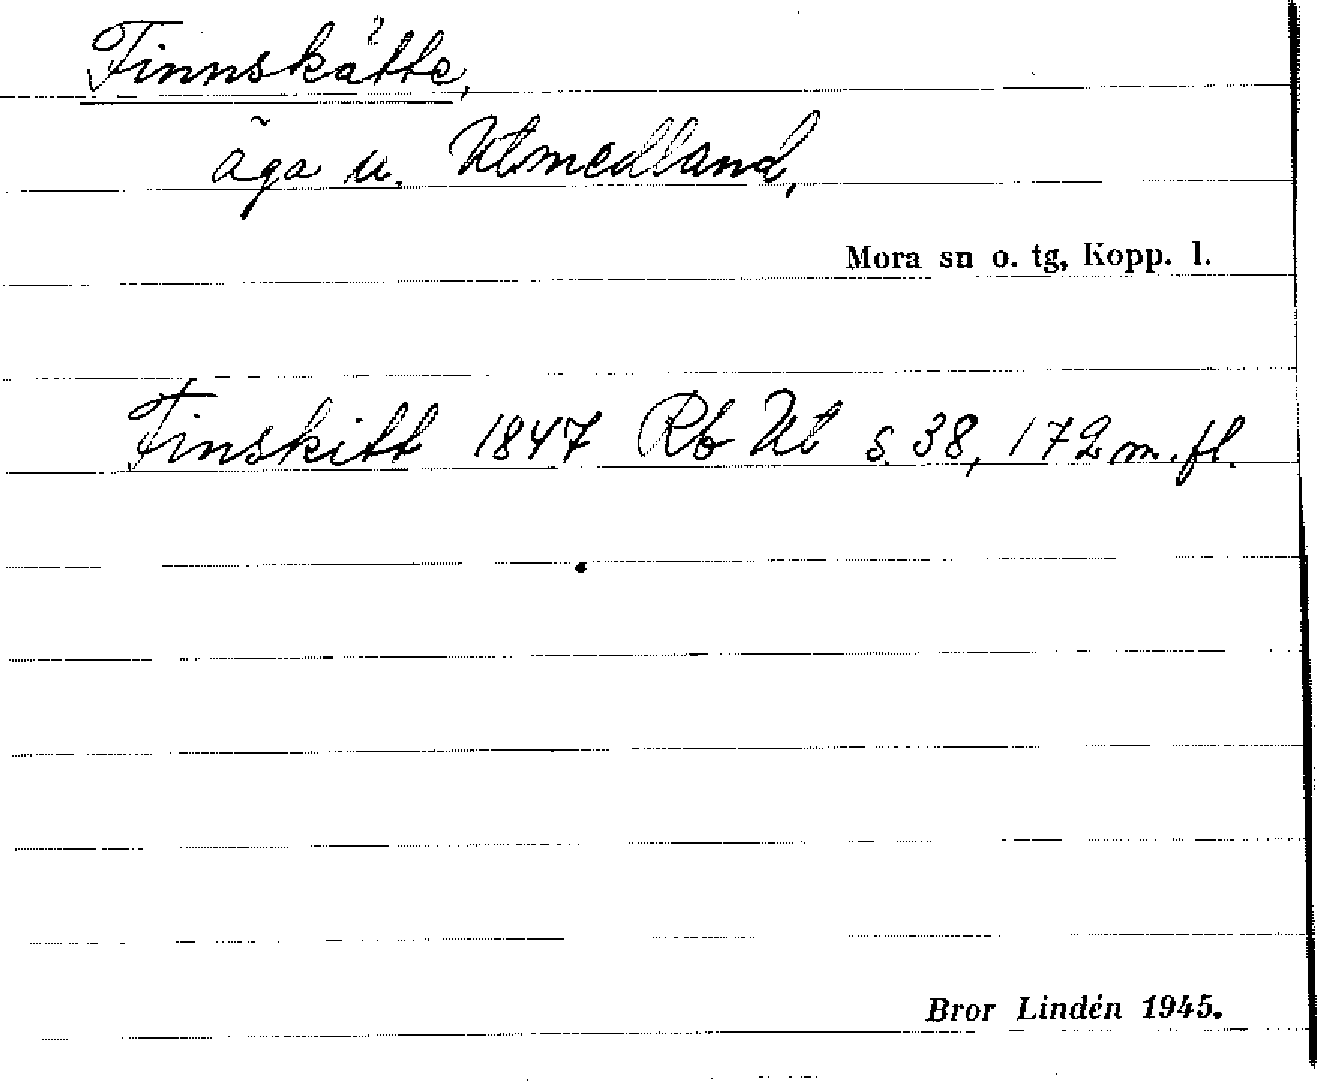 Finnskätte,
äga u. Utmedland,
Mora sn o. tg, Kopp. l.
Finskitt 1847 Rb Ut s. 38, 172 m. fl.
Bror Lindén 1945.